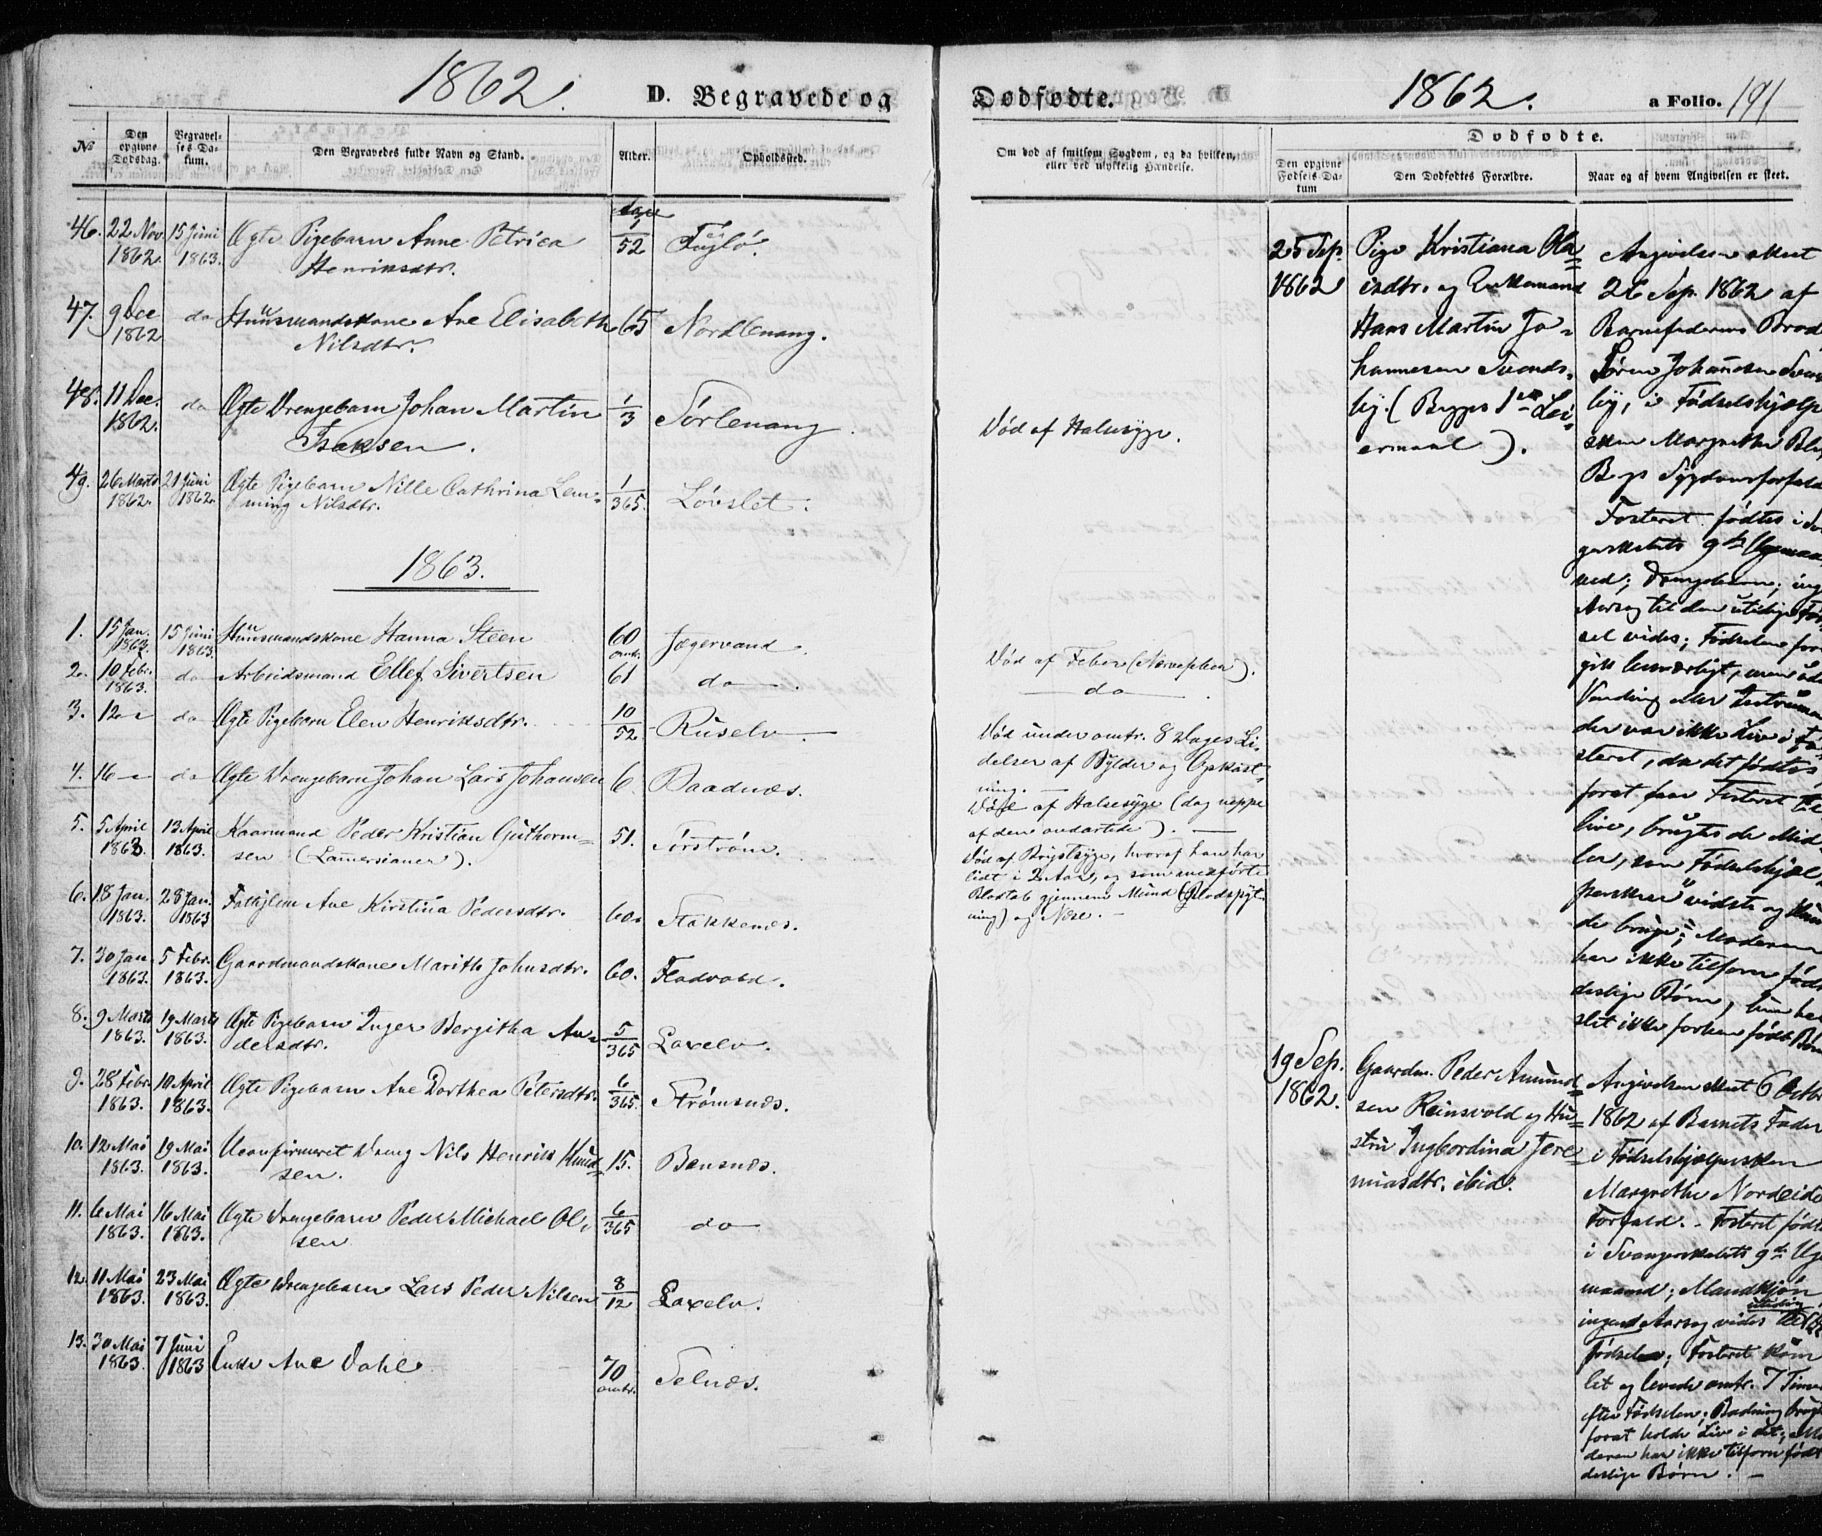 1862. D. Begravede og
№ Den opgivne Dødsdag. Begravelses Datum. Den Begravedes fulde Navn og Stand. Alder. Opholdssted.
46. 22 Nov 1862 15 Juni 1863. Ægte Pigebarn Anne Petrica Henriksdtr. 1/52 Fuglø.
47. 9 Dec 1862 do Huusmandskone Ane Elisabeth Nilsdtr. 65 Nordlenang.
48. 11 Dec. 1862. do Ægte Drengebarn Johan Martin Isaksen. 1/3 Sørlenang.
49. 26 Marts 1862. 21 Juni 1862. Ægte Pigebarn Nille Cathrina Lemming Nilsdtr. 1/365. Løvslet.
1863.
1. 15 Jan. 15 Juni 1863. Huusmandskone Hanna Steen 60 omtr. Jægervand.
2. 10 Febr. 1863. do Arbeidsmand Ellef Sivertsen 61 do
3. 12 do Ægte Pigebarn Elen Henriksdtr. 10/52 Ruselv
4. 16 do Ægte Drengebarn Johan Lars Johansen 6. Baadnæs.
5. 5 April 1863. 13 April 1863. Kaarmand Peder Kristian Guthormsen 51. Sørstrøm.
6. 18 Jan. 1863. 28 Jan. 1863 Fattiglem Ane Kirstina Pedersdtr. 60. Stakkenæs.
7. 30 Jan. 1863. 5 Febr. 1863. Gaardmandskone Marith Johnsdtr. 60. Fladvold.
8. 9 Marts 1863. 19 Marts 1863. Ægte Pigebarn Inger Bergitha Andersdtr. 5/365 Laxelv.
9. 28 Febr. 1863. 10 April 1863. Ægte Pigebarn Ane Dorthea Petersdtr. 6/365. Strømsnæs.
10. 12 Mai 1863. 19 Mai 1863. Uconfirmeret Dreng Nils Henrik Knudsen. 15. Bensnæs.
11. 6 Mai 1863. 16 Mai 1863. Ægte Drengebarn Peder Michael Olsen 6/365 do
12. 11 Mai 1863. 23 Mai 1863. Ægte Drengebarn Lars Peder Nilsen 8/12 Laxelv.
13. 30 Mai 1863. 7 Juni 1863 Enke Ane Dahl. 70 omtr. Selnæs.
Dødfødte. 1862. a Folio. 191
Om død af smitsom Sygdom, og da hvilken, eller ved ulykkelig Hændelse.
Dødfødte.
Den opgivne Fødsels Datum
Den Dødfødtes Forældre.
Naar og af hvem Angivelsen er skeet.
Død af Halsesyge.
Død af Feber (Nervefeber).
do
Død under omtr. 8 Dages Li-
delser af Bylder og Opkast-
ning.
Død af Halsesyge (dog neppe
af den ondartede).
Død af Brystsyge, hvoraf han har
lidt i 2 Aar, og som medførte
Blodtab gjennem Mund (Blodspyt-
ning) og Nese.
25 Sep. 1862
Pige Kristiana Ola-
isdtr. og Enkemand
Hans Martin Jo-
hannesen Svends-
by. (Begges 1ste Lei-
ermaal).
Angivelsen skeet
26 Sep. 1862 af
Barnefaderens Brod
Søren Johannesen Svens
by, i Fødselshjælpe
sken Margrethe
Sygdomsforfald
Fosteret fødtes i
9de
ned; Drengebarn; ing
Aarsag til den utidige Før-
sel vides; Fødselen for
gik
Vending eller Instrumen
der var ikke Liv i Fo-
steret, da det fødtes,
forat faae Fosteret til
live, brugtes de Mid-
ler, som Fødselshjæl-
persken vidste og kun
de bruge; Moderen
har ikke tilforn født
deslige Børn, hun har
slet ikke forhen født Børn
19 Sep. 1862.
Gaardm. Peder Amund-
sen Reinsvold og Hu-
stru Ingbordina Jere-
miasdtr. ibid.
Angivelsen skeet 6 Octbr
1862 af Barnets Fader
i Fødselshjælpersken
Margrethe Nordeide
Forfald. - Fosteret født
i Svangerskabets 9de Uge
maaned; Mandkjøn
ingen Aarsag vides til utidig
Fødsel; Fosteret kom
let og levede omtr. 7 Timer
efter Fødselen; Badning brugt
forat holde Liv i det; Mo
deren har ikke tilforn født
deslige Børn.